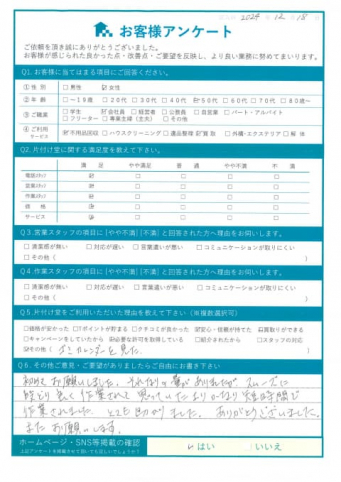 2024 年 12 月 18 日
お客様アンケート
ご依頼を頂き誠にありがとうございました。
お客様が感じられた良かった点・改善点・ご要望を反映し、より良い業務に努めてまいります。
Q1.お客様に当てはまる項目にご回答ください。
① 性 別 □ 男性 ☑ 女性
② 年 齢 □ ~19歳 □ 20代 □ 30代 □ 40代 ☑ 50代 □ 60代 □ 70代 □ 80歳~
③ ご職業 □ 学生 □ 会社員 □ 経営者 □ 公務員 □ 自営業 □ パート・アルバイト
□ フリーター □ 専業主婦(主夫) □ その他
④ ご利用サービス ☑ 不用品回収 □ ハウスクリーニング □ 遺品整理 ☑ 買取 □ 外構・エクステリア □ 解体
Q2.片付け堂に関する満足度を教えて下さい。
満 足 やや満足 普 通 やや不満 不 満
電話スタッフ ☑ □ □ □ □
営業スタッフ ☑ □ □ □ □
作業スタッフ ☑ □ □ □ □
価 格 ☑ □ □ □ □
サービス ☑ □ □ □ □
Q3.営業スタッフの項目に[やや不満][不満]と回答された方へ理由をお伺いします。
□ 清潔感が無い □ 対応が遅い □ 言葉遣いが悪い □ コミュニケーションが取りにくい
□ その他( )
Q4.作業スタッフの項目に[やや不満][不満]と回答された方へ理由をお伺いします。
□ 清潔感が無い □ 対応が遅い □ 言葉遣いが悪い □ コミュニケーションが取りにくい
□ その他( )
Q5.片付け堂をご利用いただいた理由を教えて下さい(※複数選択可)
□価格が安かった □Tポイントが貯まる □クチコミが良かった ☑安心・信頼が持てた ☑買取りができる
□キャンペーンをしていたから ☑必要な許可を取得している □紹介されたから □スタッフの対応
☑その他( ゴミカレンダーを見た )
Q6.その他ご意見・ご要望がありましたらご自由にお書き下さい
初めてお願いしました。それなりの量がありましたが スムーズに
段どり良く作業されて 思っていたよりかなり短時間で
作業されました。とても助かりました。ありがとうございました。
またお願いします。
ホームページ・SNS等掲載の確認
上記アンケートを掲載させて頂いても宜しいでしょうか?
はい / いいえ